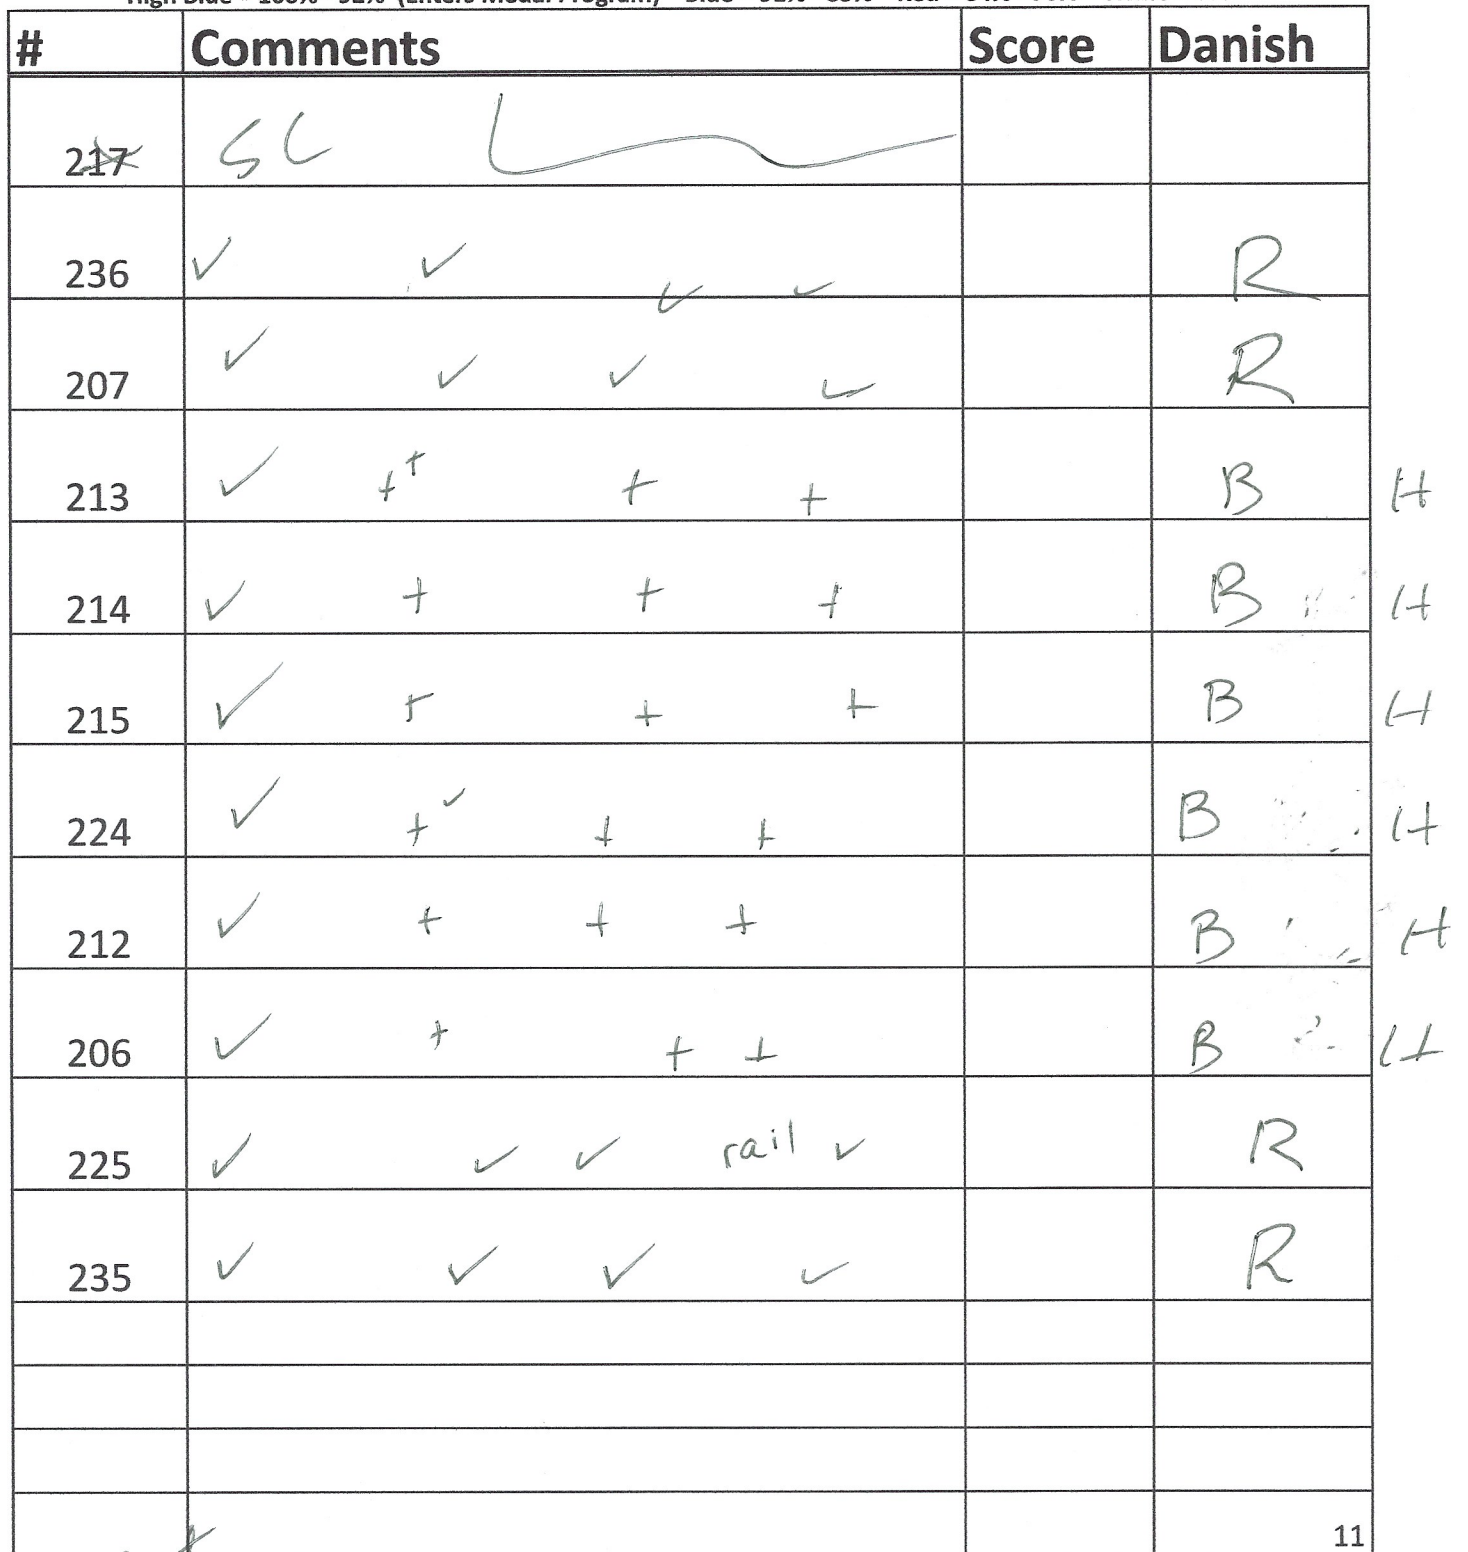 # Comments Score Danish
217 SC
236 ✓ ✓ ✓ ✓ R
207 ✓ ✓ ✓ ✓ R
213 ✓ + + + + B H
214 ✓ + + + B H
215 ✓ + + + B H
224 ✓ + ✓ + + B H
212 ✓ + + + B H
206 ✓ + + + B H
225 ✓ ✓ ✓ rail ✓ R
235 ✓ ✓ ✓ ✓ R
11